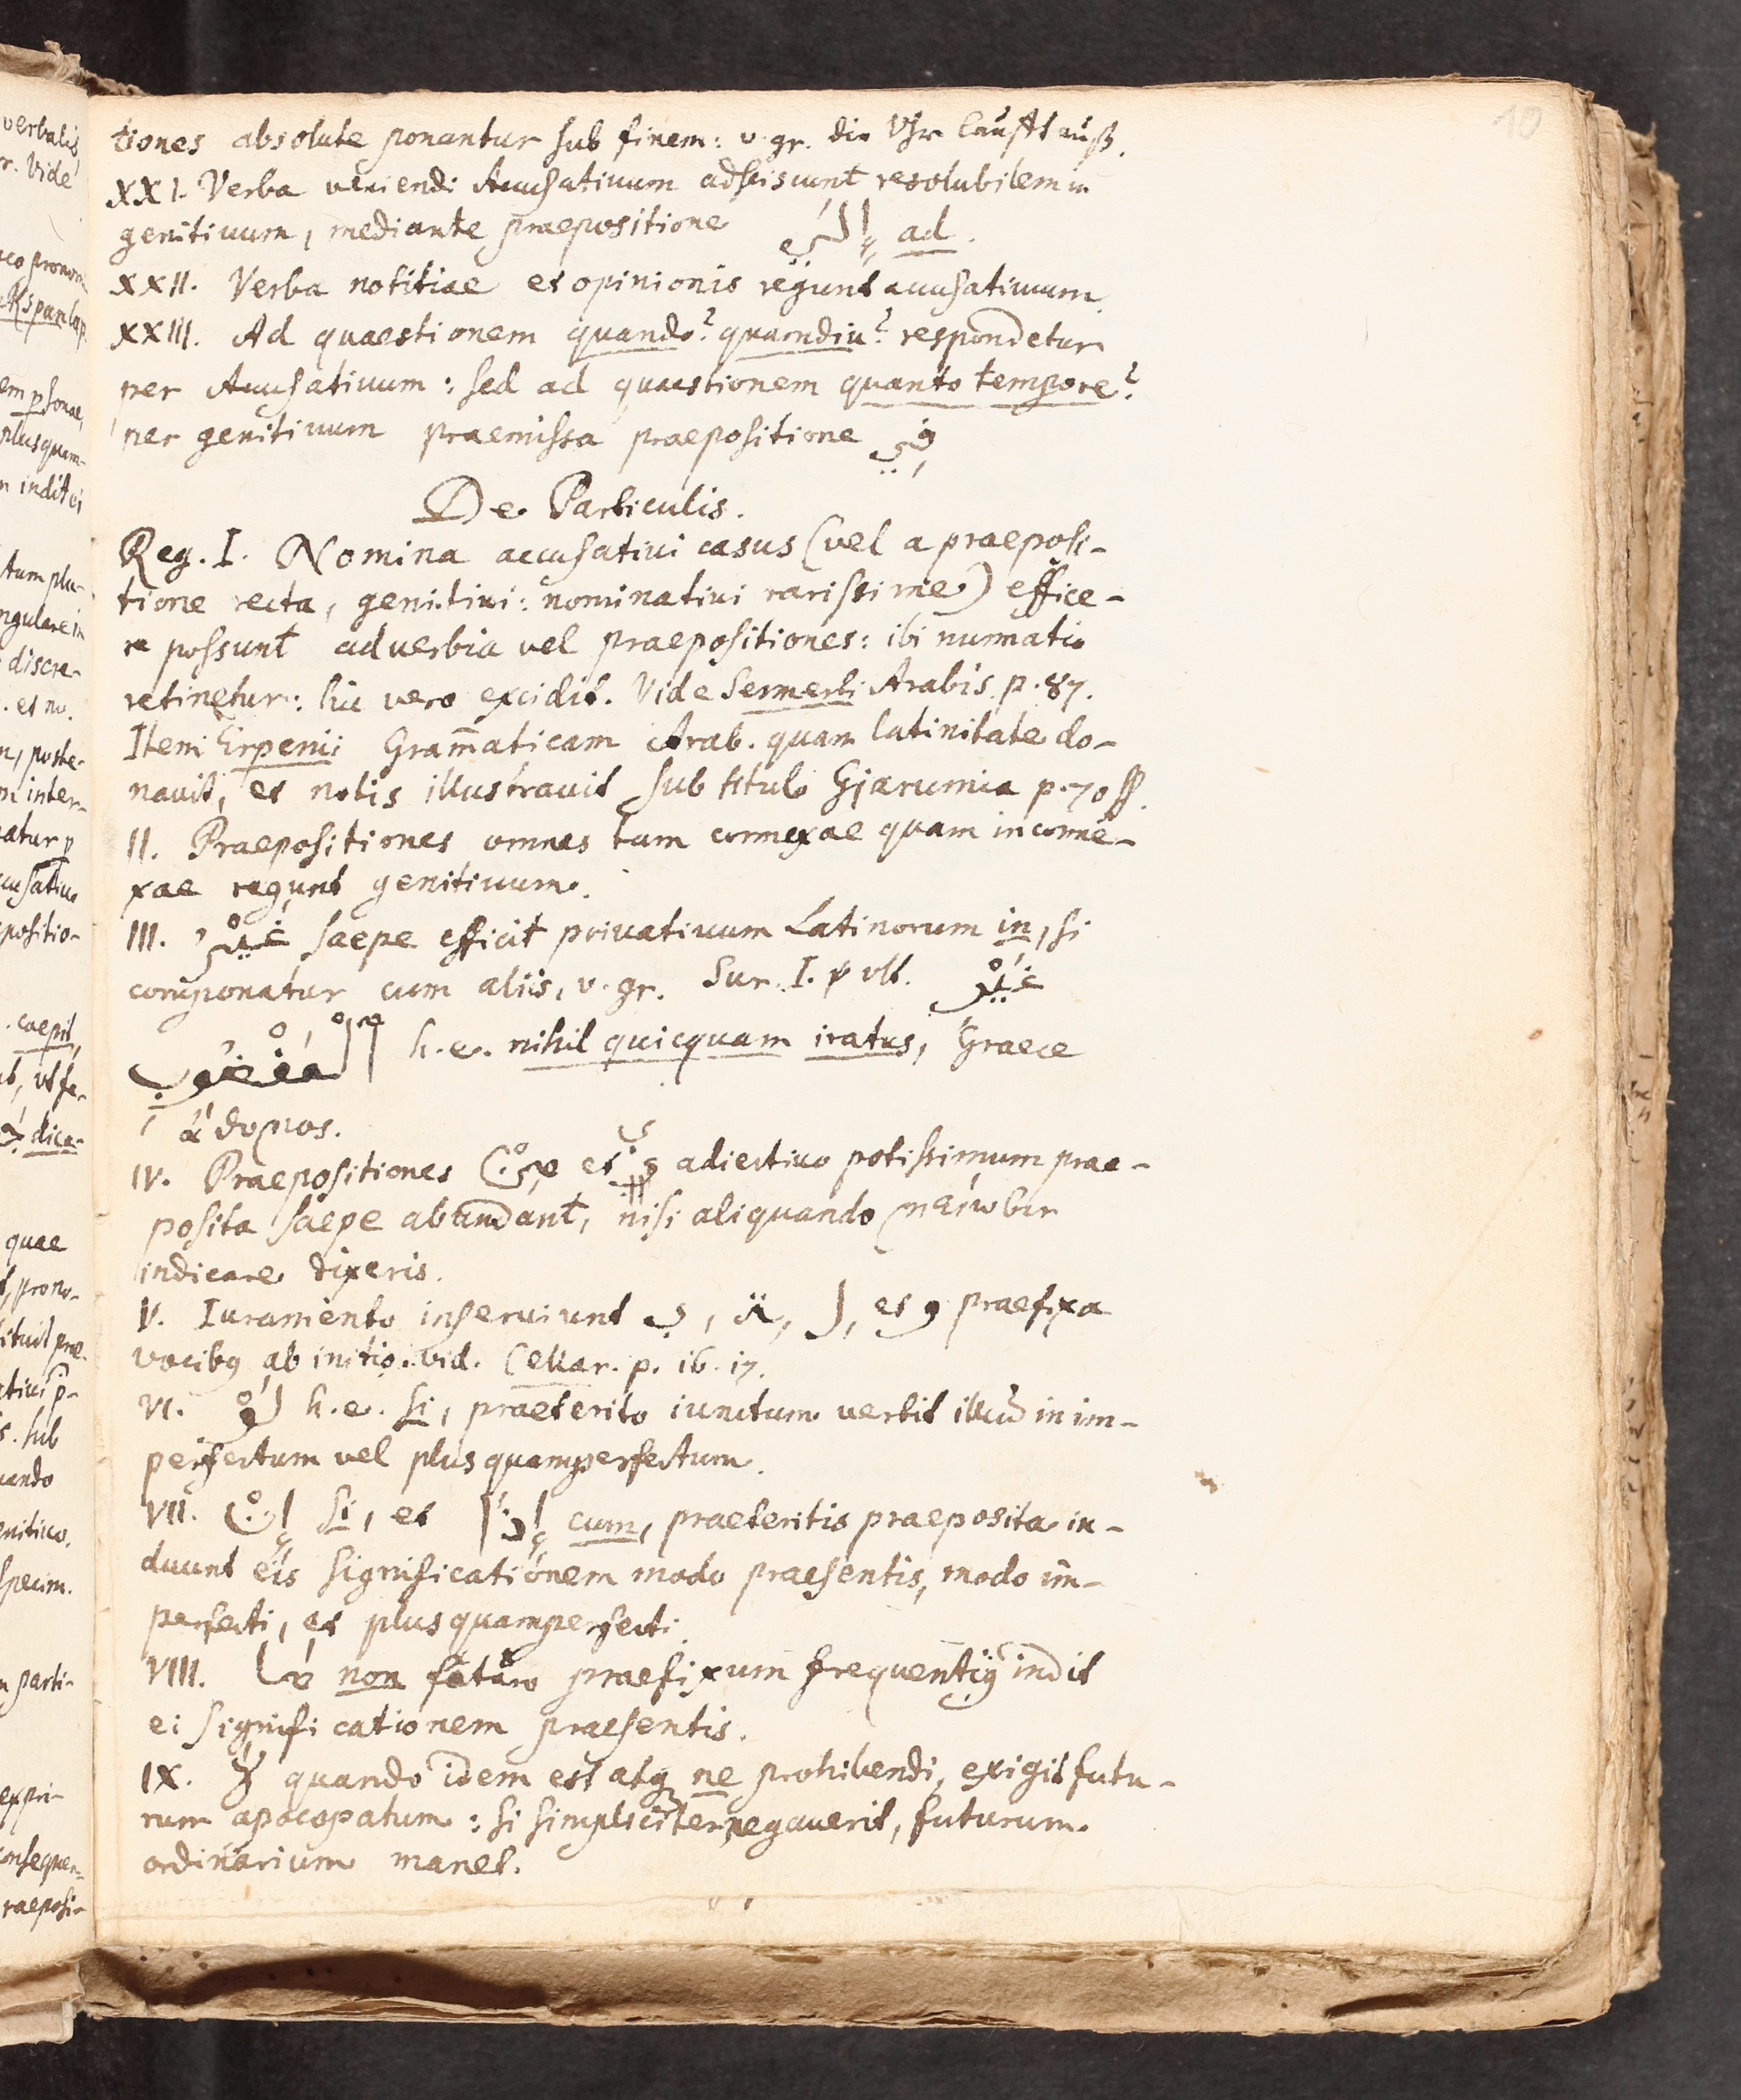 10
tiones absolute ponantur sub finem: v. gr. die Uhr laufft auß.
XXI. Verba veniendi Accusativum adsciscunt resolubilem in
genitivum, mediante praepositione إِلَى ad.
XXII. Verba notitiae et opinionis regunt accusativum.
XXIII. Ad quaestionem quando? quamdiu? respondetur
per Accusativum: sed ad quaestionem quanto tempore?
per genitivum praemissa praepositione فِي
De Particulis.
Reg. I. Nomina accusativi casus (vel a praeposi-
tione recta, genitivi: nominativi rarissime) effice-
re possunt adverbia vel praepositiones: ibi nunnatio
retinetur: hic vero excidit. Vide Sennerti Arabis. p. 87.
Item Erpenii Grammaticam Arab. quam latinitate do-
navit, et notis illustravit sub titulo Gjarumia p. 70 ss.
II. Praepositiones omnes tam connexae quam inconne-
xae regunt genitivum.
III. غَيْرَ saepe efficit privativum Latinorum in, si
componatur cum aliis, v. gr. Sur. I. ℣ ult. غَيْرَ
ٱلْمَغْضُوبِ h. e. nihil quicquam iratus, Graece
ἄδομος.
IV. Praepositiones مِنْ et فِي adiectivo potissimum prae-
posita saepe abundant, nisi aliquando
indicare dixeris.
V. Iuramento inserviunt بِ, تَ, لِ, et و praefixa
vocibꝰ ab initio. vid. Cellar. p. 16. 17.
VI. لَوْ h. e. si, praeterito iunctum vertit illud in im-
perfectum vel plusquamperfectum.
VII. إِنْ si, et إِذَا cum, praeteritis praeposita in-
duunt eis significationem modo praesentis, modo im-
perfecti, et plusquamperfecti.
VIII. مَا non futuro praefixum frequentiꝰ indit
ei significationem praesentis.
IX. لَا quando idem est atq ne prohibendi, exigit futu-
rum apocopatum: si simpliciter negaverit, futurum
ordinarium manet.